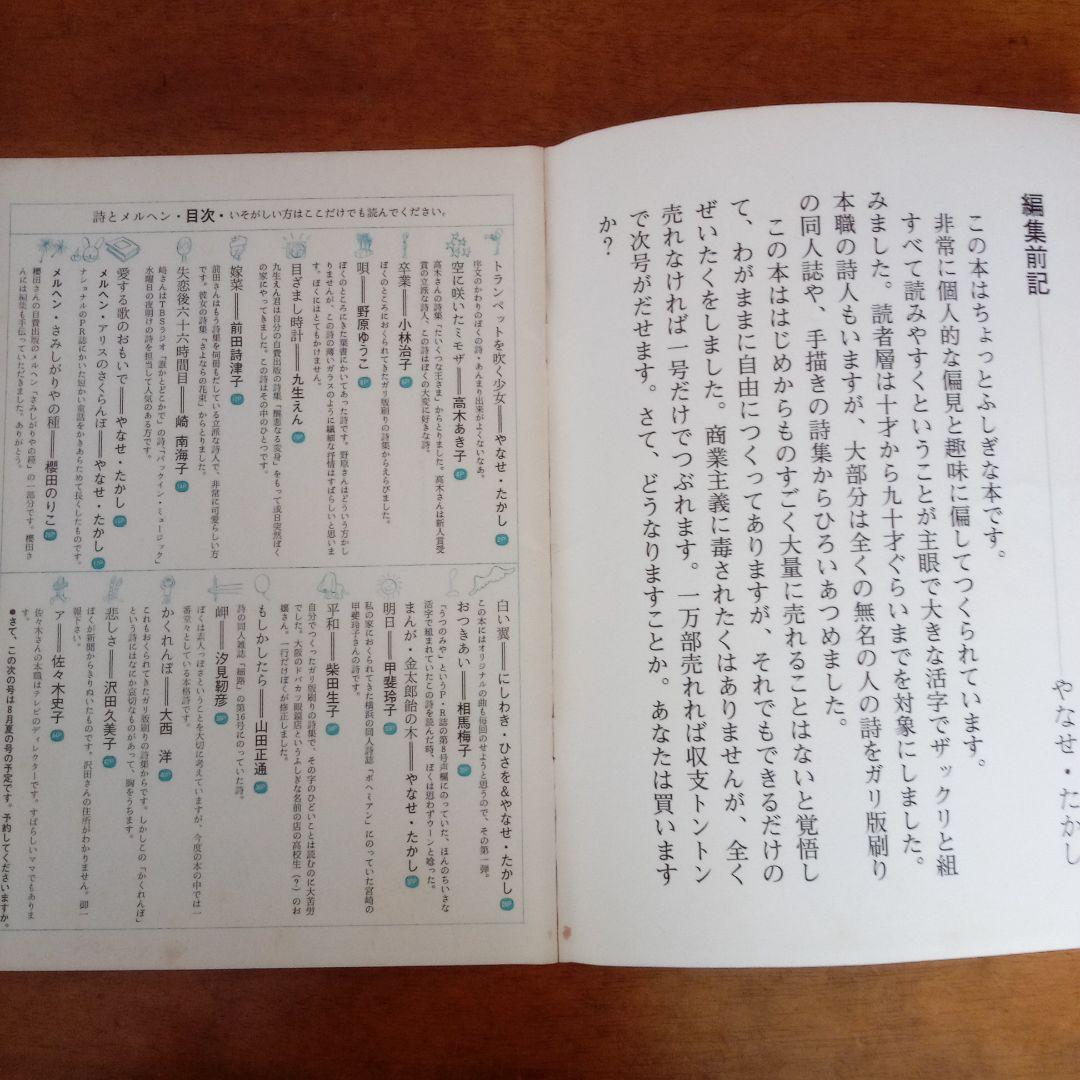 編集前記
やなせ・たかし
この本はちょっとふしぎな本です。
非常に個人的な偏見と趣味に偏してつくられています。
すべて読みやすくということが主眼で大きな活字でザックリと組
みました。読者層は十才から九十才ぐらいまでを対象にしました。
本職の詩人もいますが、大部分は全くの無名の人の詩をガリ版刷り
の同人誌や、手描きの詩集からひろいあつめました。
この本ははじめからものすごく大量に売れることはないと覚悟し
て、わがままに自由につくってありますが、それでもできるだけの
ぜいたくをしました。商業主義に毒されたくはありませんが、全く
売れなければ一号だけでつぶれます。一万部売れれば収支トントン
で次号がだせます。さて、どうなりますことか。あなたは買います
か?
詩とメルヘン・目次・いそがしい方はここだけでも読んでください。
トランペットを吹く少女══やなせ・たかし
序文のかわりのぼくの詩・あんまり出来がよくないなあ。
空に咲いたミモザ══高木あき子
高木さんの詩集「たいくつな王さま」からとりました。高木さんは新人賞受
賞の立派な詩人、この詩はぼくの大変に好きな詩。
卒業══小林治子
ぼくのところにおくられてきたガリ版刷りの詩集からえらびました。
唄══野原ゆうこ
ぼくのところにきた葉書にかいてあった詩です。野原さんはどういう方かし
りませんが、この詩の薄いガラスのように繊細な抒情はすばらしいと思いま
す。ぼくにはとてもかけません。
目ざまし時計══九生えん
九生えん君は自分の自費出版の詩集「醜悪なる変身」をもって或日突然ぼく
の家にやってきました。この詩はその中のひとつです。
嫁菜══前田詩津子
前田さんはもう詩集を何冊もだしている立派な詩人で、非常に可愛らしい方
です。彼女の詩集「さよならの花束」からとりました。
失恋後六十六時間目══崎 南海子
崎さんはTBSラジオ「誰かとどこかで」の詩「パックイン・ミュージック」
水曜日の夜明けの詩を担当して人気のある方です。
愛する歌のおもいで══やなせ・たかし
メルヘン・アリスのさくらんぼ══やなせ・たかし
ナショナルのPR誌にかいた短かい童話をかきあらためて長くしたものです。
メルヘン・さみしがりやの種══櫻田のりこ
櫻田さんの自費出版のメルヘン「さみしがりやの種」の一部分です。櫻田さ
んには編集も手伝っていただきました。ありがとう。
白い翼══にしわき・ひさを&やなせ・たかし
この本にはオリジナルの曲も毎回のせようと思うので、その第一弾。
おつきあい══相馬梅子
「うつのみや」というP・R誌の第8号声欄にのっていた、ほんのちいさな
活字で組まれていたこの詩を読んだ時、ぼくは思わずウーンと唸った。
まんが・金太郎飴の木══やなせ・たかし
明日══甲斐玲子
私の家におくられてきた横浜の同人詩誌「ボヘミアン」にのっていた宮崎の
甲斐玲子さんの詩です。
平和══柴田生子
自分でつくったガリ版刷りの詩集で、その字のひどいことは読むのに大苦労
でした。大阪のドバカツ眼鏡店というふしぎな名前の店の高校生(?)のお
嬢さん。一行だけぼくが修正しました。
もしかしたら══山田正通
詩の同人雑誌「細路」の第16号にのっていた詩。
岬══汐見靭彦
ぼくは素人っぽさということを大切に考えていますが、今度の本の中では一
番堂々としている本格詩です。
かくれんぼ══大西 洋
これもおくられてきたガリ版刷りの詩集からです。しかしこの「かくれんぼ」
という詩にはなにか哀切なものがあって、胸をうちます。
悲しさ══沢田久美子
ぼくが新聞からきりぬいたものです。沢田さんの住所がわかりません。御一
報下さい。
ア══佐々木史子
佐々木さんの本職はテレビのディレクターです。すばらしいママでもありま
す。
●さて、この次の号は8月夏の号の予定です。予約してくださいますか。